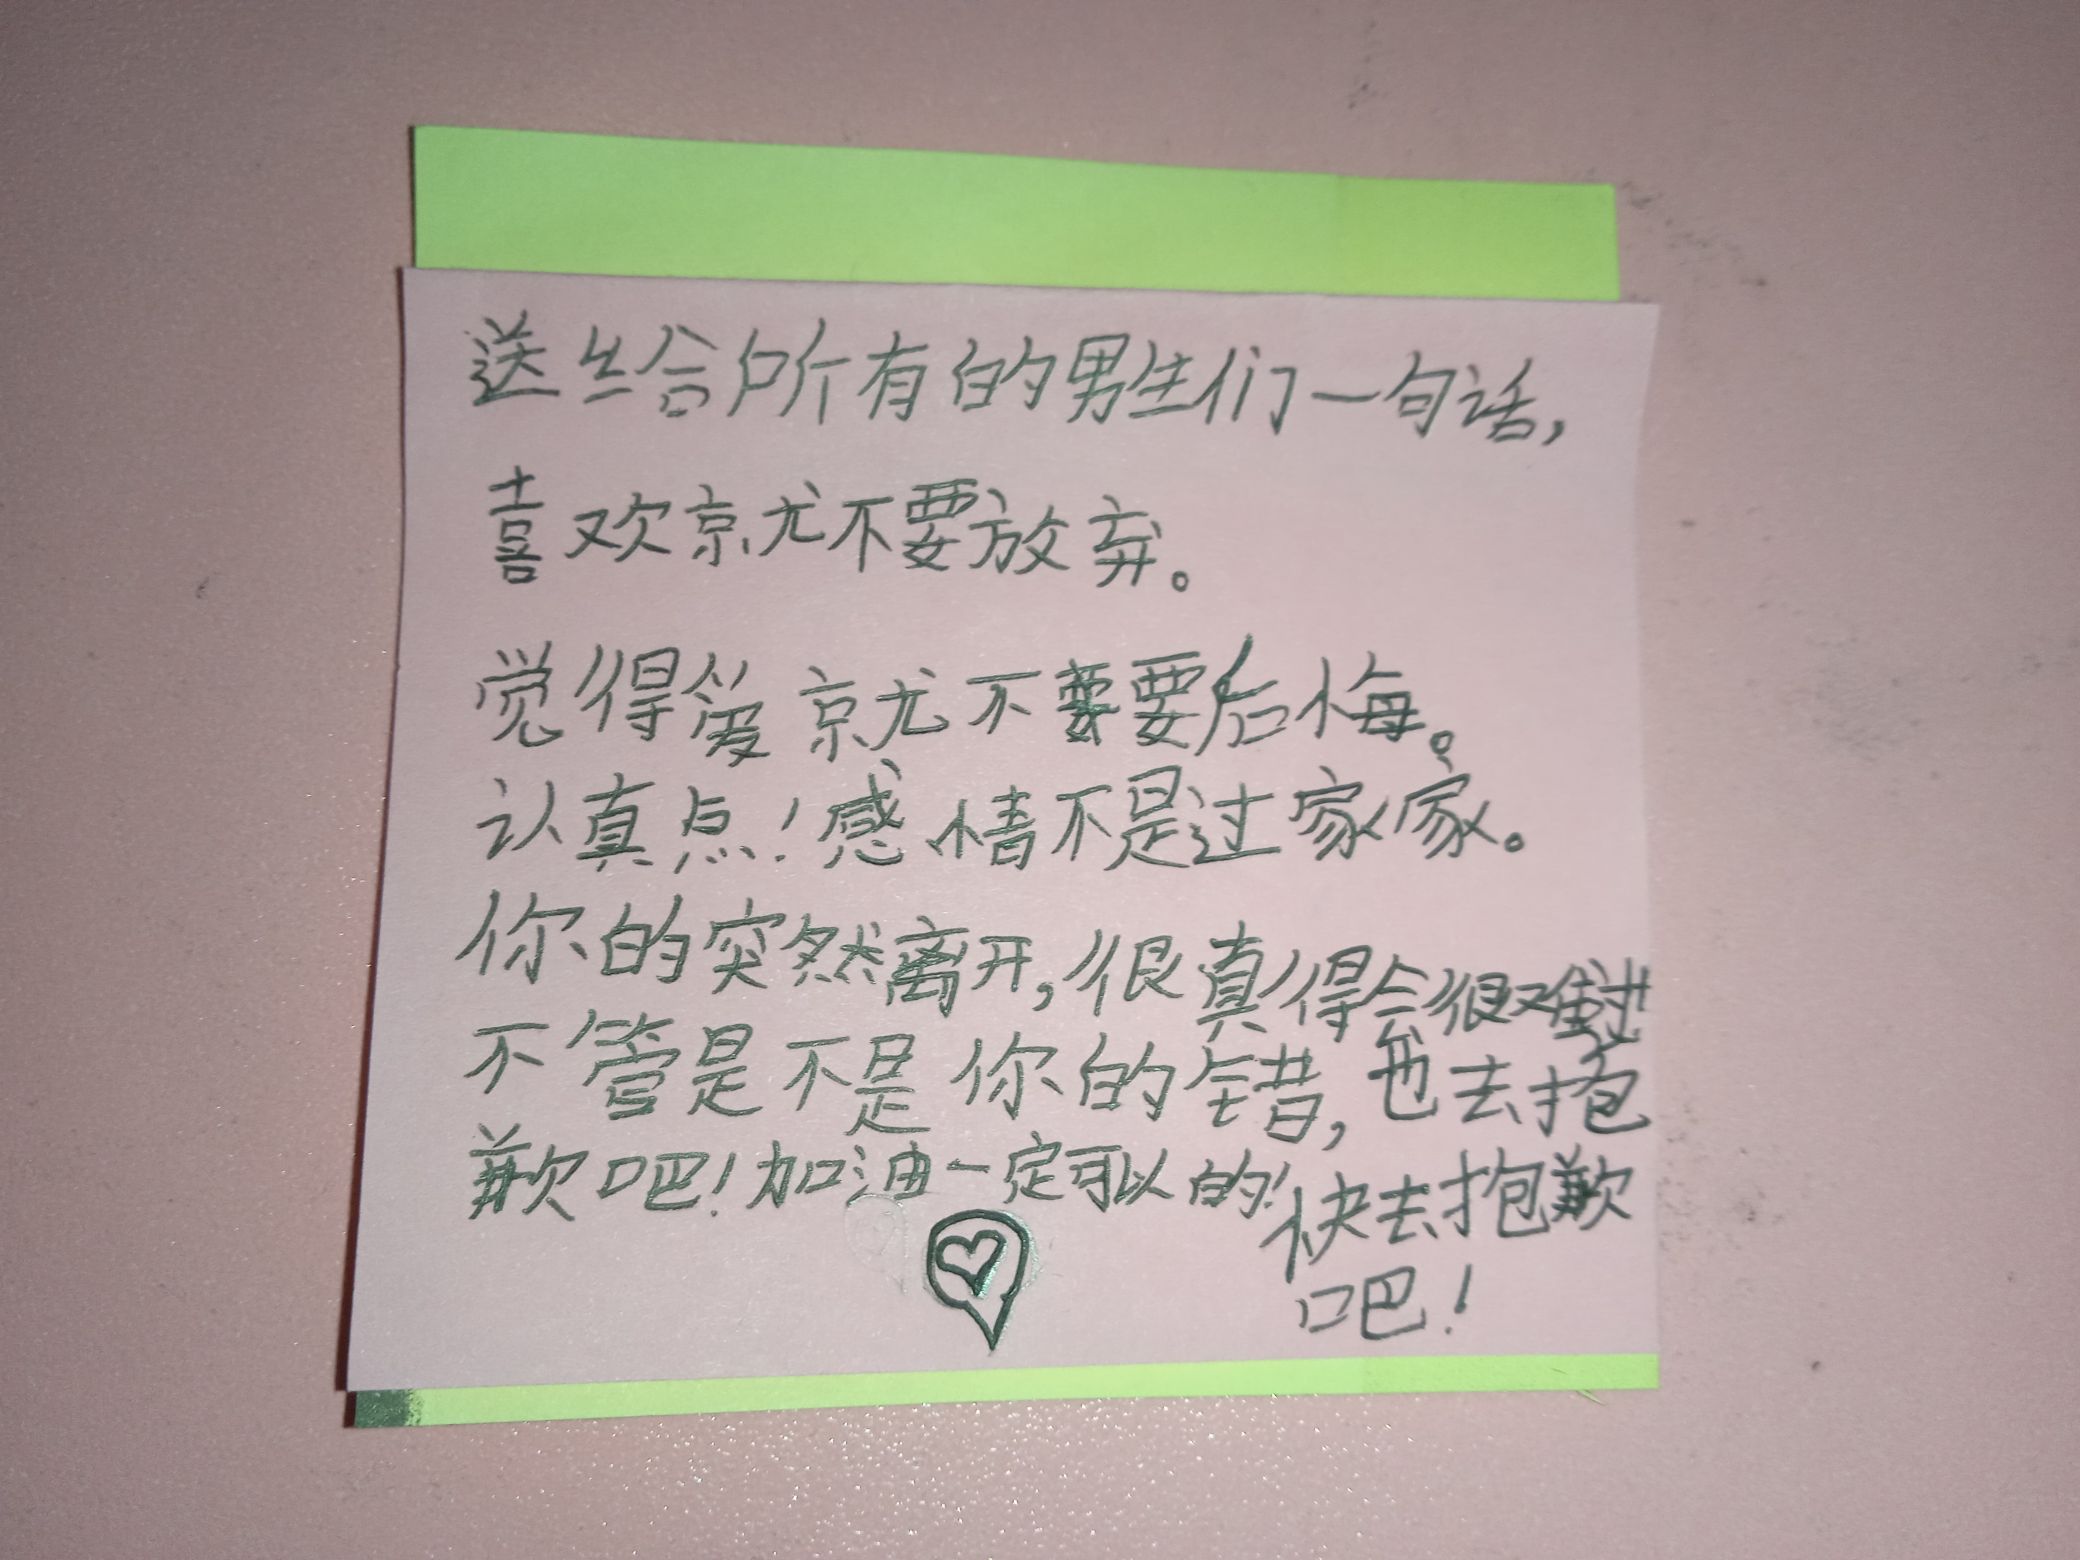 送给所有的男生们一句话，
喜欢就不要放弃。
觉得爱就不要要后悔。
认真点！感情不是过家家。
你的突然离开，很真得会很难过
不管是不是你的错，也去抱
歉吧！加油一定可以的！快去抱歉
吧！